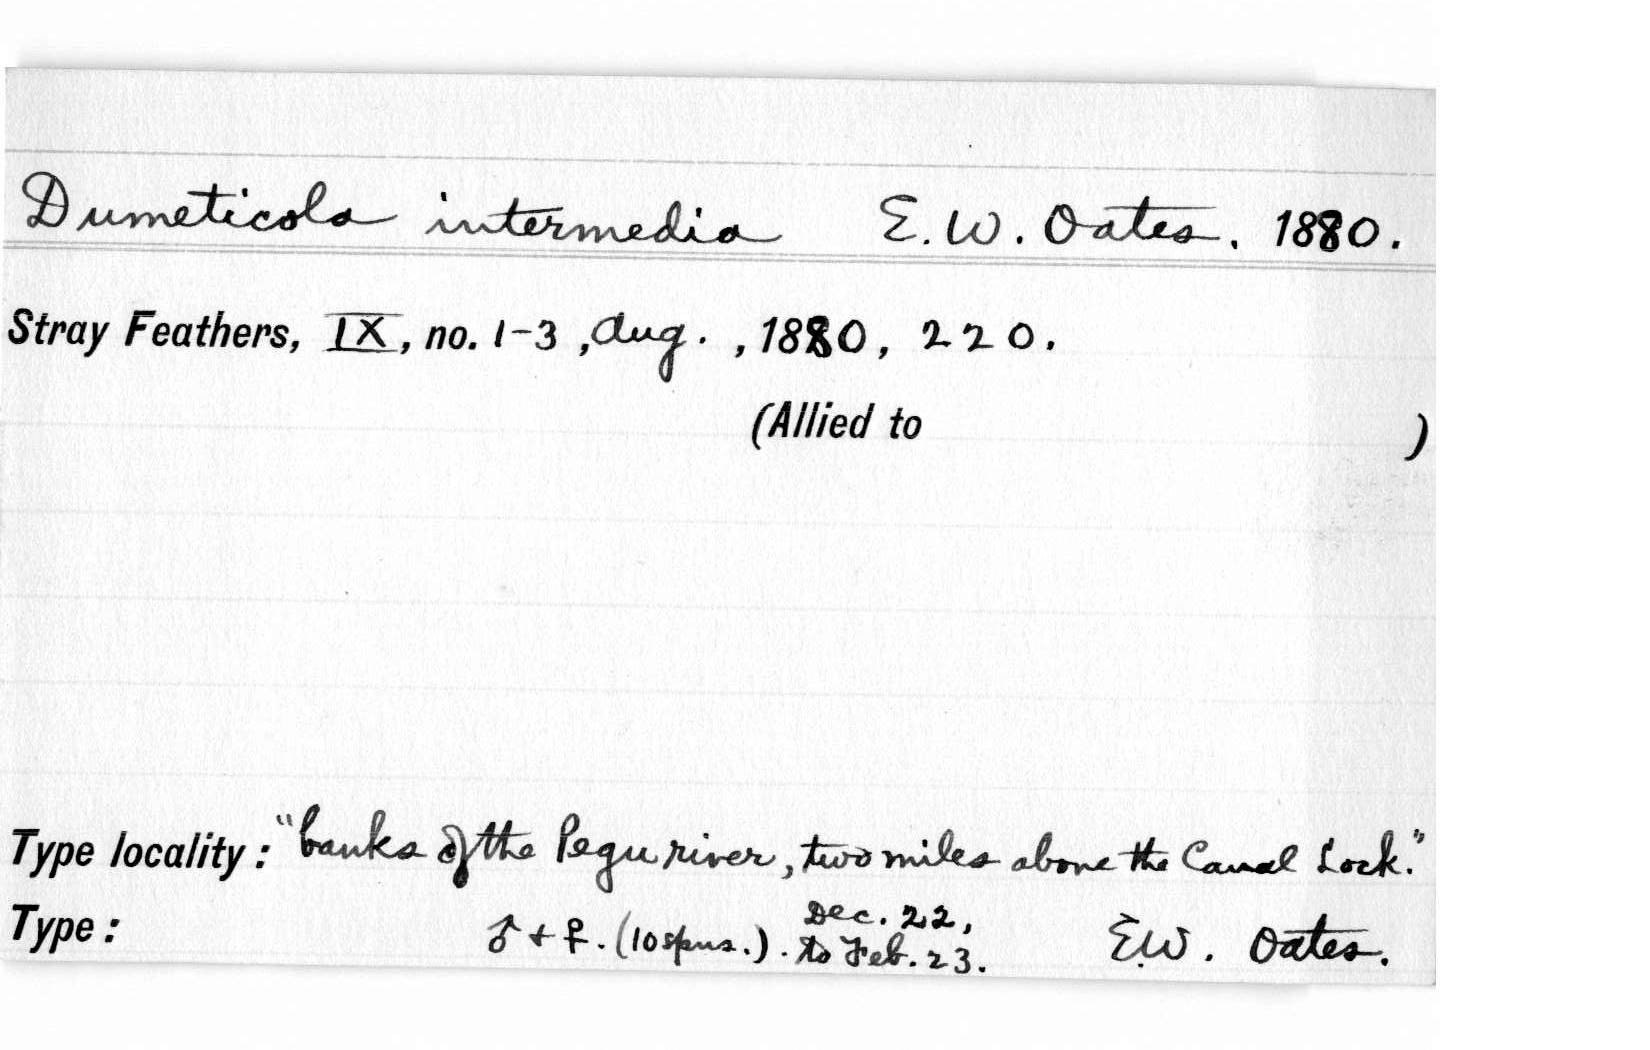 Dumeticola intermedia E. W. Oates. 1880.
Stray Feathers, IX, no. 1-3, Aug., 1880, 220.
(Allied to )
Type locality: "banks of the Pegu river, two miles above the Canal Lock."
Type: ♂ + ♀. (10 spms.). Dec. 22, to Feb. 23. E.W. Oates.